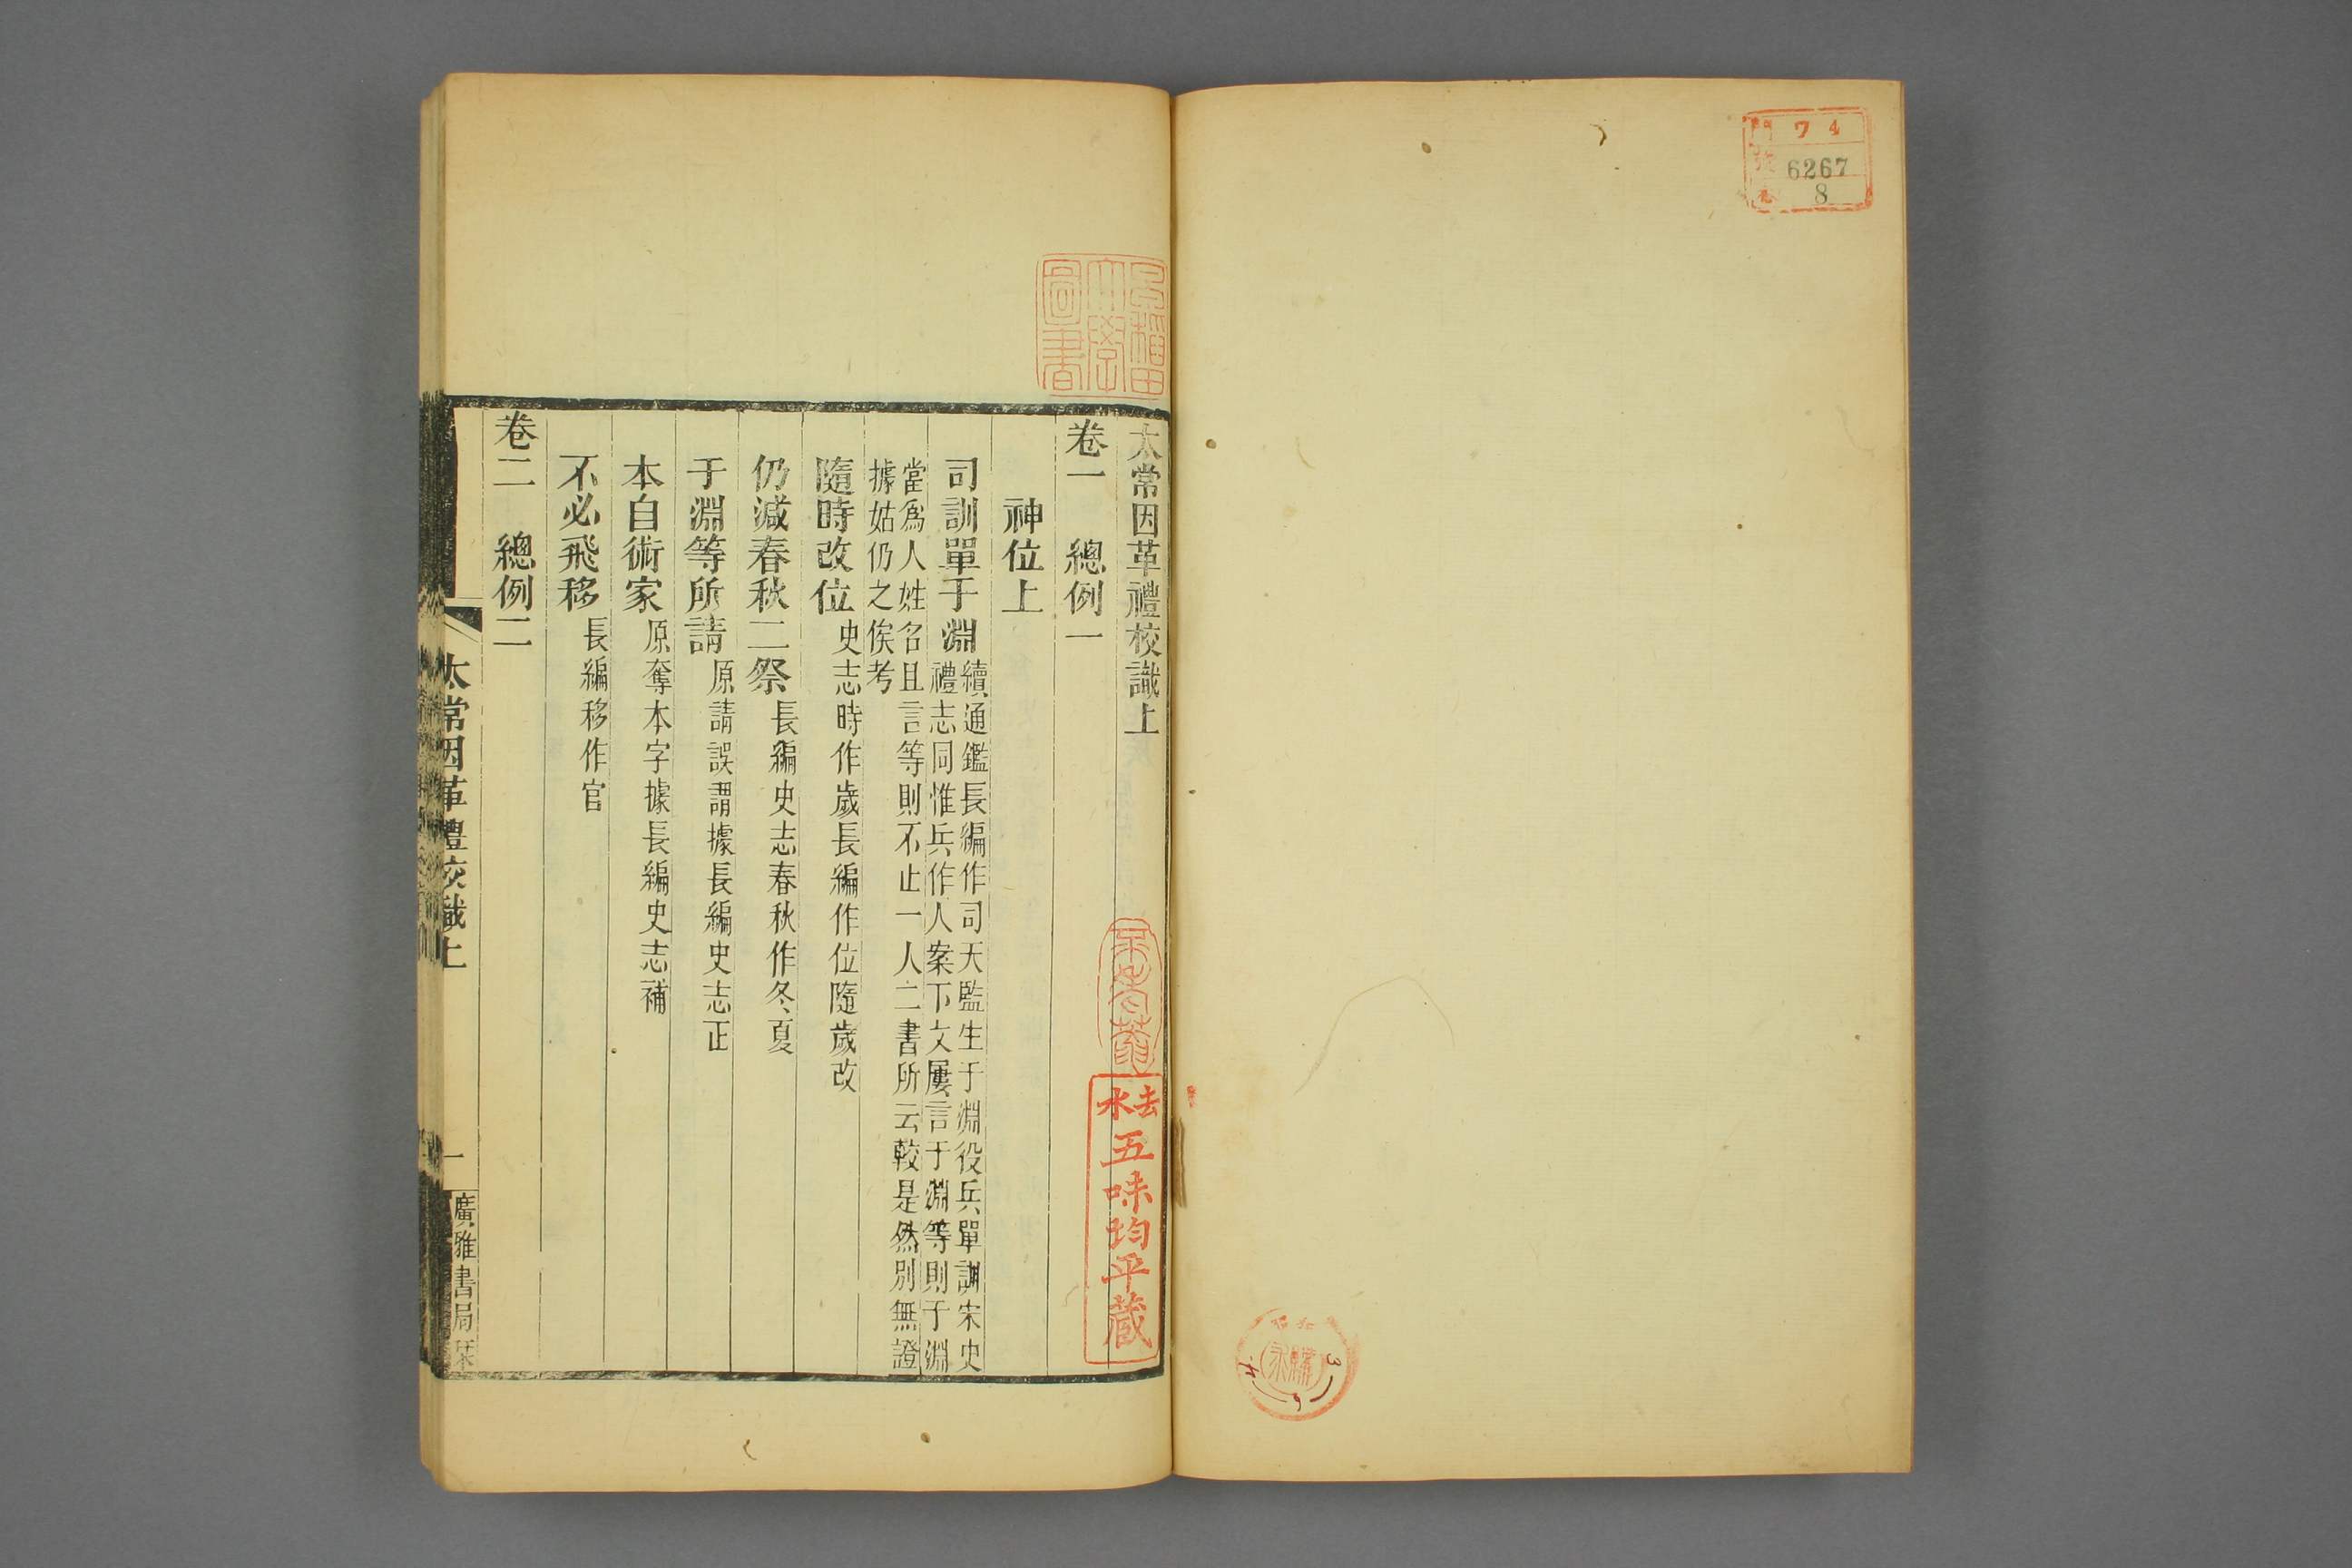 7 4
6267
8
早稲田
大學
圖書
太常因革禮校識上
卷一 總例一
神位上
司訓單于淵
續通鑑長編作司天監生于淵役兵單訓宋史
禮志同惟兵作人案下文屢言于淵等則于淵
當爲人姓名且言等則不止一人二書所云較是然別無證
據姑仍之俟考
隨時改位 史志時作歲長編作位隨歲改
仍減春秋二祭 長編史志春秋作冬夏
于淵等所請 原請誤謂據長編史志正
本自術家 原奪本字據長編史志補
不必飛移 長編移作官
卷二 總例二
太常因革禮校識上
一
廣雅書局栞
五味均平蔵